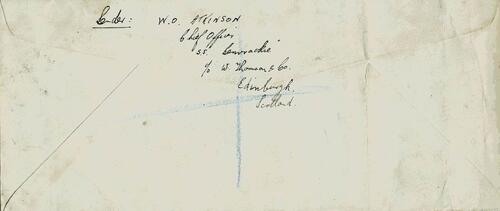 Sender: W.O. ATKINSON
Chief Officer
S.S. "Benvrackie"
c/o W. Thomson & Co.
Edinburgh.
Scotland.